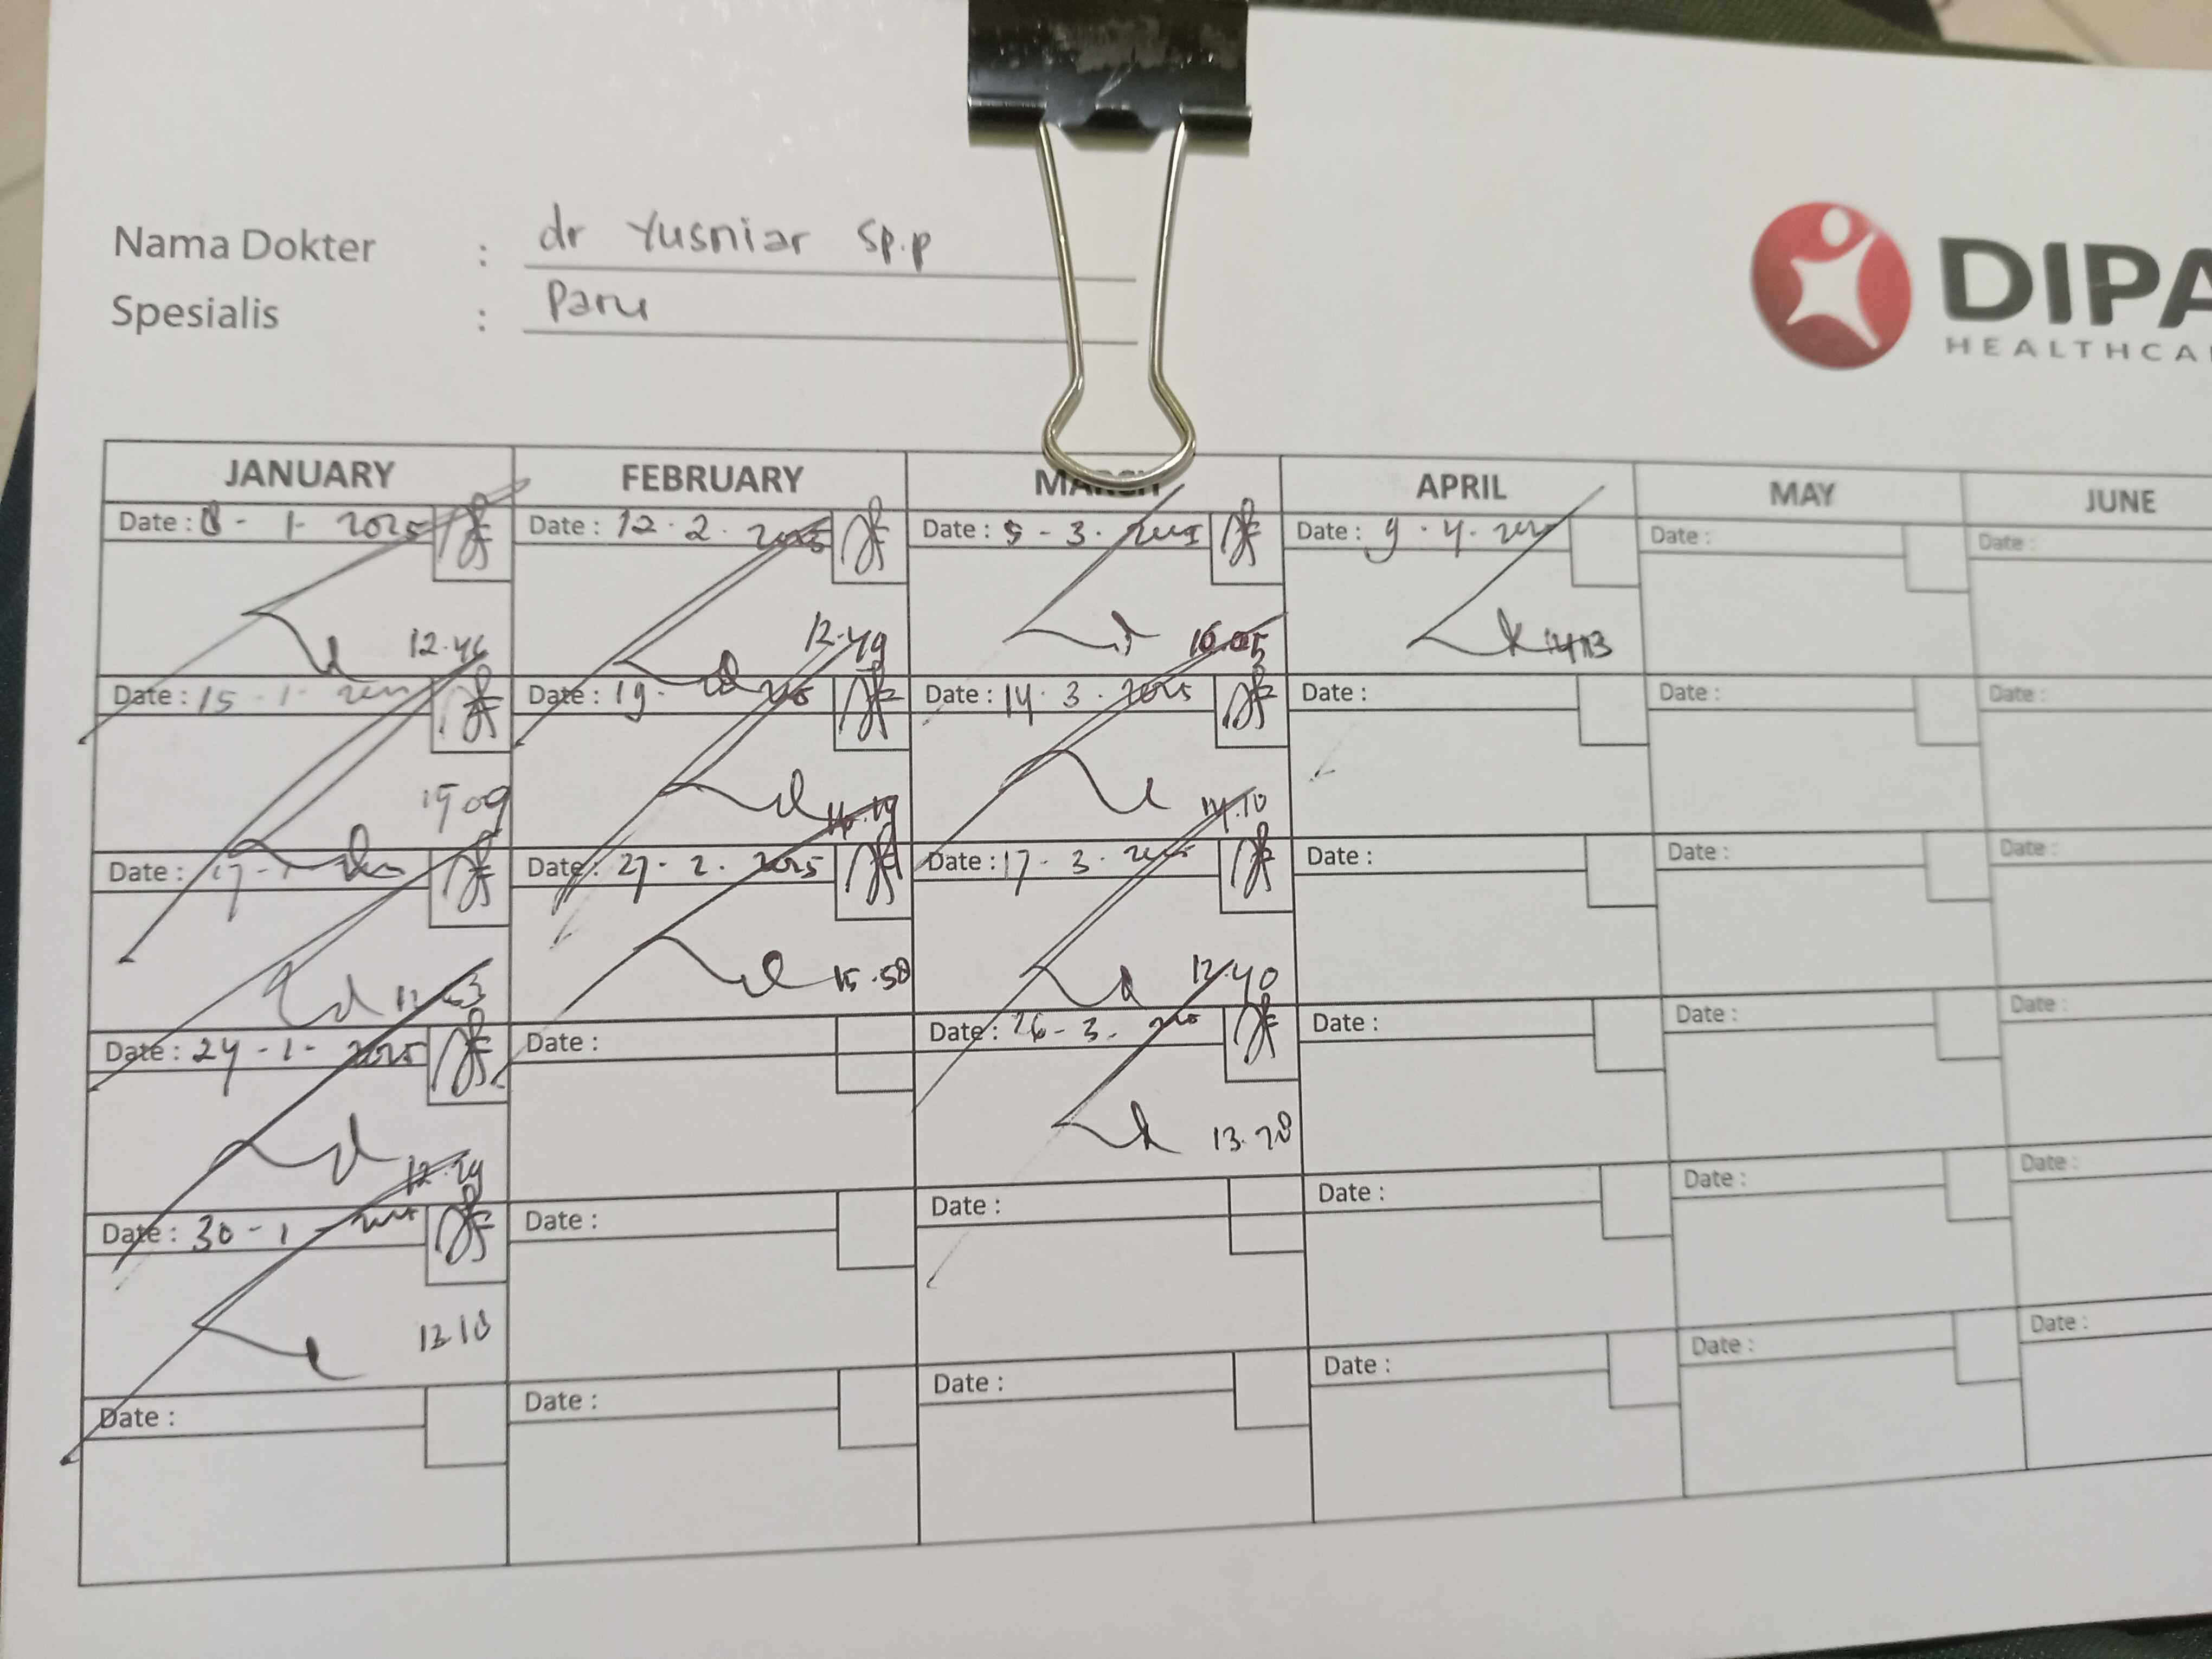 Nama Dokter : dr Yusniar Sp.p
Spesialis : Paru
DIPA
HEALTHCA
JANUARY FEBRUARY MARCH APRIL MAY JUNE
Date : 8 - 1 - 2025 Date : 12 . 2 . 2025 Date : 5 - 3 . 2025 Date : 9 . 4 . Date : Date :
12.46 12.49 16.05
Date : 15 - 1 - Date : 19 - Date : 14 . 3 . 2025 Date : Date : Date :
09 14.10
Date : 17 - Date : 27 - 2 . 2025 Date : 17 - 3 . Date : Date : Date :
15.58 12.40
Date : 24 - 1 - 2025 Date : Date : 26 - 3 . Date : Date : Date :
12.29 13.28
Date : 30 - 1 - Date : Date : Date : Date : Date :
Date : Date : Date : Date : Date : Date :